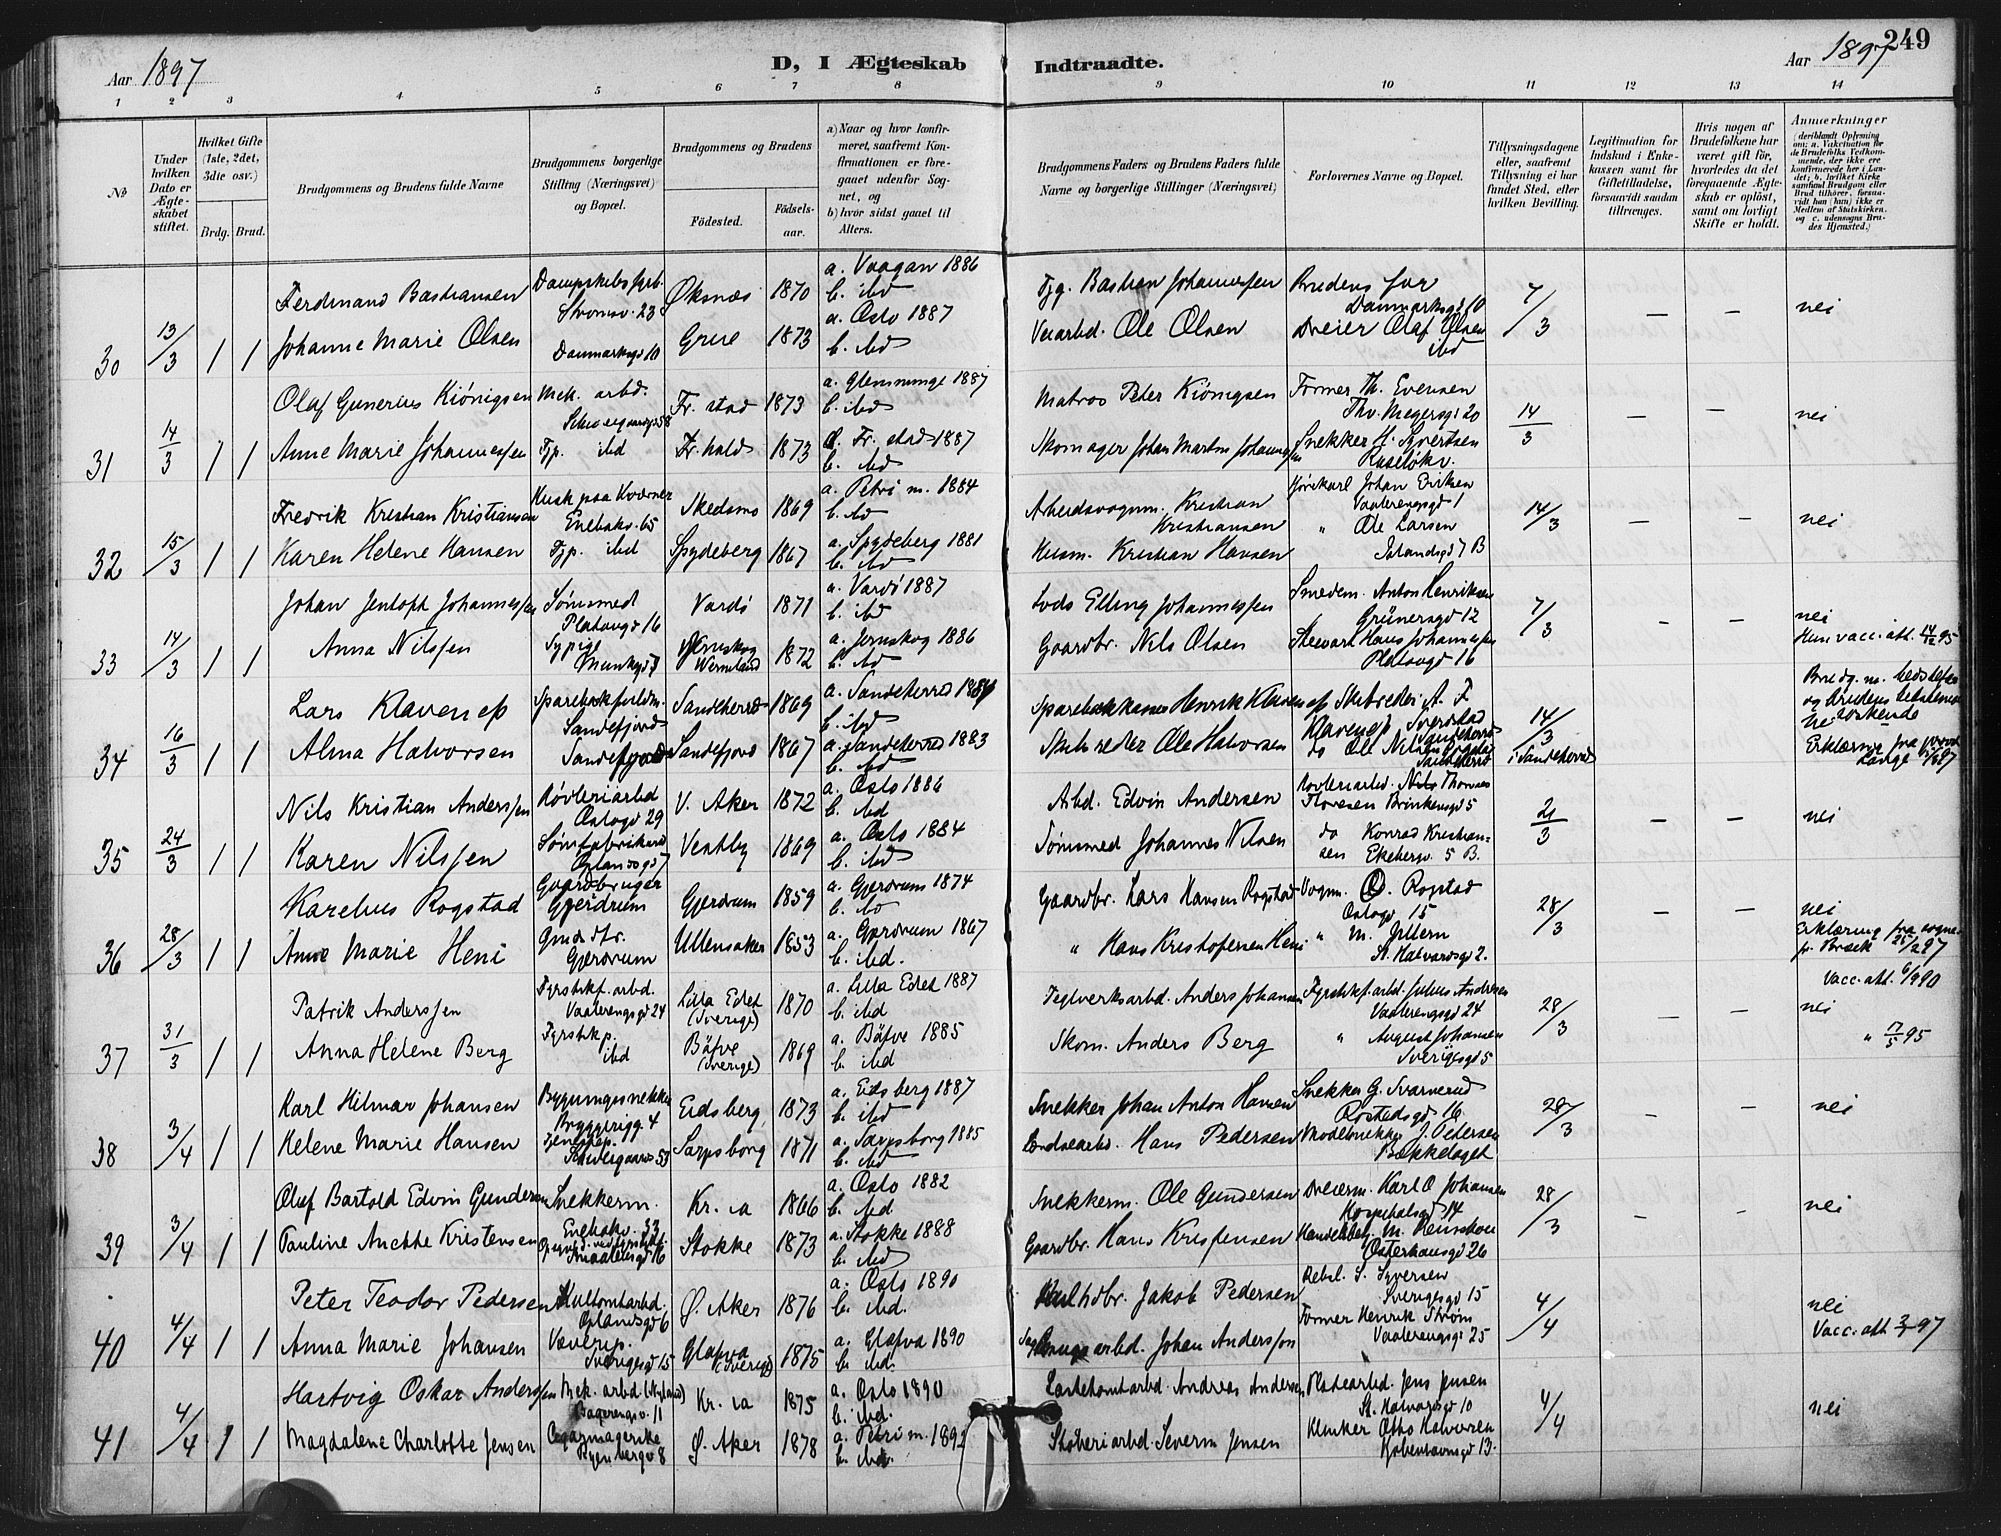 249
Aar 1897
D, I Ægteskab Indtraadte.
Aar 1897
1 2 3 4 5 6 7 8 9 10 11 12 13 14
No
Under hvilken Dato er Ægteskabet stiftet.
Hvilket Gifte (1ste, 2det, 3die osv.)
Brdg. Brud.
Brudgommens og Brudens fulde Navne
Brudgommens borgerlige Stilling (Næringsvei) og Bopæl.
Brudgommens og Brudens
Fødested.
Fødselsaar.
a) Naar og hvor konfirmeret, saafremt Konfirmationen er foregaaet udenfor Sognet, og
b) hvor sidst gaaet til Alters.
Brudgommens Faders og Brudens Faders fulde Navne og borgerlige Stillinger (Næringsvei)
Forlovernes Navne og Bopæl.
Tillysningsdagene eller, saafremt Tillysning ei har fundet Sted, efter hvilken Bevilling.
Legitimation for Indskud i Enkekassen samt for Giftetilladelse, forsaavidt saadan tiltrænges.
Hvis nogen af Brudefolkene har været gift før, hvorledes da det foregaaende Ægteskab er opløst, samt om lovligt Skifte er holdt.
Anmerkninger
30 13/3 1 1
Ferdinand Bastiansen Strømsv. 23 Øksnæs 1870 a. Vaagan 1886 b. ibd
Bastian Johannessen Brudens far Danmarksgd 10 7/3 — — nei
Johanne Marie Olsen Danmarksgd 10 Grue 1873 a. Oslo 1887 b. ibd
Veiarbd. Ole Olsen Dreier Olaf Olsen ibd
31 14/3 1 1
Olaf Gunerius Kiönigsen Mek. arbd. Fr. stad 1873 a. Glemminge 1887 b. ibd
Matros Peter Kiönigsen Former Th. Evensen Thv. Meyersgd 20 14/3 — — nei
Anne Marie Johannessen Tjp. ibd Fr.hald 1873 a. Fr. stad 1887 b. ibd
Skomager Johan Martin Johannessen Snekker H. Syvertsen Ruseløkv.
32 15/3 1 1
Fredrik Kristian Kristiansen Kusk paa Kværner Enebakv. 65 Skedsmo 1869 a. Petri m. 1884 b. ibd
Arbeidsvognm. Kristian Kristiansen Kjørekarl Johan Eriksen Vaalerengsgd 1 14/3 — — nei
Karen Helene Hansen Tjp. ibd Spydeberg 1867 a. Spydeberg 1881 b. ibd
Husm. Kristian Hansen " Ole Larsen Islandsgd 7 B
33 14/3 1 1
Johan Jentoft Johannessen Sømsmed Platousgd 16 Vardö 1871 a. Vardö 1887 b. ibd
Lods Elling Johannessen Smedem. Anton Henriksen Grünersgd 12 7/3 — — nei
Anna Nilssen Sypige Munkegd Jernskog Wermland 1872 a. Jernskog 1886 b. ibd
Gaardbr. Nils Olsen Stewart Hans Johannessen Platousgd 16 Hun vacc. att. 14/12 95
34 16/3 1 1
Lars Klavenes Sandefjord Sandeherred 1869 a. Sandeherred b. ibd
Henrik Klavenes Skibsreder A. F. Klavenes Sandeherred 14/3 i Sandeherred
Alma Halvorsen Sandefjord Sandefjord 1867 a. Sandeherred 1883 b. ibd
Skibsreder Ole Halvorsen do Ole Nilsen Sandeherred
Erklæring fra
35 24/3 1 1
Nils Kristian Anderssen Høvleriarbd Oslogd 29 V. Aker 1872 a. Oslo 1886 b. ibd
Arbd. Edvin Andersen Høvleriarbd. Nils Thomas 21/3 — — nei
Karen Nilssen Vestby 1869 a. Oslo 1884 b. ibd
Sømsmed Johannes Nilsen do Konrad Kristiansen Ekebergv. 5 B.
36 28/3 1 1
Karelius Rogstad Gaardbruger Gjerdrum Gjerdrum 1859 a. Gjerdrum 1874 b. ibd
Gaardbr. Lars Hansen Rogstad Vognm. O. Rogstad Oslogd 15 28/3 — — nei
Anne Marie Heni Gmdrtr. Gjerdrum Ullensaker 1853 a. Gjerdrum 1867 b. ibd.
" Hans Kristofersen Heni " M. St. Halvardsgd 2. Erklæring fra sognep.
37 31/3 1 1
Patrik Anderssen Fyrstikf. arbd. Vaalerengsgd 24 Lilla Edet (Sverige) 1870 a. Lilla Edet 1887 b. ibd
Teglverksarbd. Anders Johansen Fyrstikf. arbd. Julius Andersen Vaalerengsgd 24 28/3 — — nei
Anna Helene Berg Fyrstikp. ibd Bäfve (Sverige) 1869 a. Bäfve 1885 b. ibd
Skom. Anders Berg " August Johansen Sverigesgd 5
38 3/4 1 1
Karl Hilmar Johansen Bygningssnekker Bryggerigd 4 Eidsberg 1873 a. Eidsberg 1887 b. ibd
Snekker Johan Anton Hansen Snekker G. Svarverud Rostedsgd 16 28/3 — — nei
Helene Marie Hansen Tjenestep. Sarpsborg 1871 a. Sarpsborg 1885 b. ibd
Hans Pedersen Modelsnekker J. Petersen Bækkelaget
39 3/4 1 1
Oluf Bartold Edvin Gundersen Snekkerm. Enebakv. 33 Kr. ia 1866 a. Oslo 1882 b. ibd
Snekkerm. Ole Gundersen Dreierm. Karl O Johansen Hospitalsgd 14 28/3 — — nei
Pauline Anette Kristensen Stokke 1873 a. Stokke 1888 b. ibd
Gaardbr. Hans Kristensen Handelsbetj. M. Osterhausgd 26
40 4/4 1 1
Peter Teodor Pedersen Kultomtarbd. Ø. Aker 1876 a. Oslo 1890 b. ibd.
Jakob Pedersen Rebsl. S. Syversen Sverigesgd 15 4/4 nei
Anna Marie Johansen Væverp. Sverigesgd 15 Glafva (Sverige) 1875 a. Glafva 1890 b. ibd.
Sagbrugsarbd. Johan Anderssen Former Henrik Strøm Vaalerengsgd 25 Vacc. att. 97
41 4/4 1 1
Hartvig Oskar Anderssen Mek. arbd (Nyland) Kr. ia 1875 a. Oslo 1890 b. ibd.
Lastetomtarbd. Andreas Andersen Pladearbd. Jens Jensen St. Halvardsgd 10 4/4 nei
Magdalene Charlotte Jensen Cigarmagerske Ryenbergv 8 Ø. Aker 1878 a. Petri m. 1892 b. ibd.
Støberiarbd. Severin Jensen Klinker Otto Halvorsen Kjøbenhavnsgd 13.